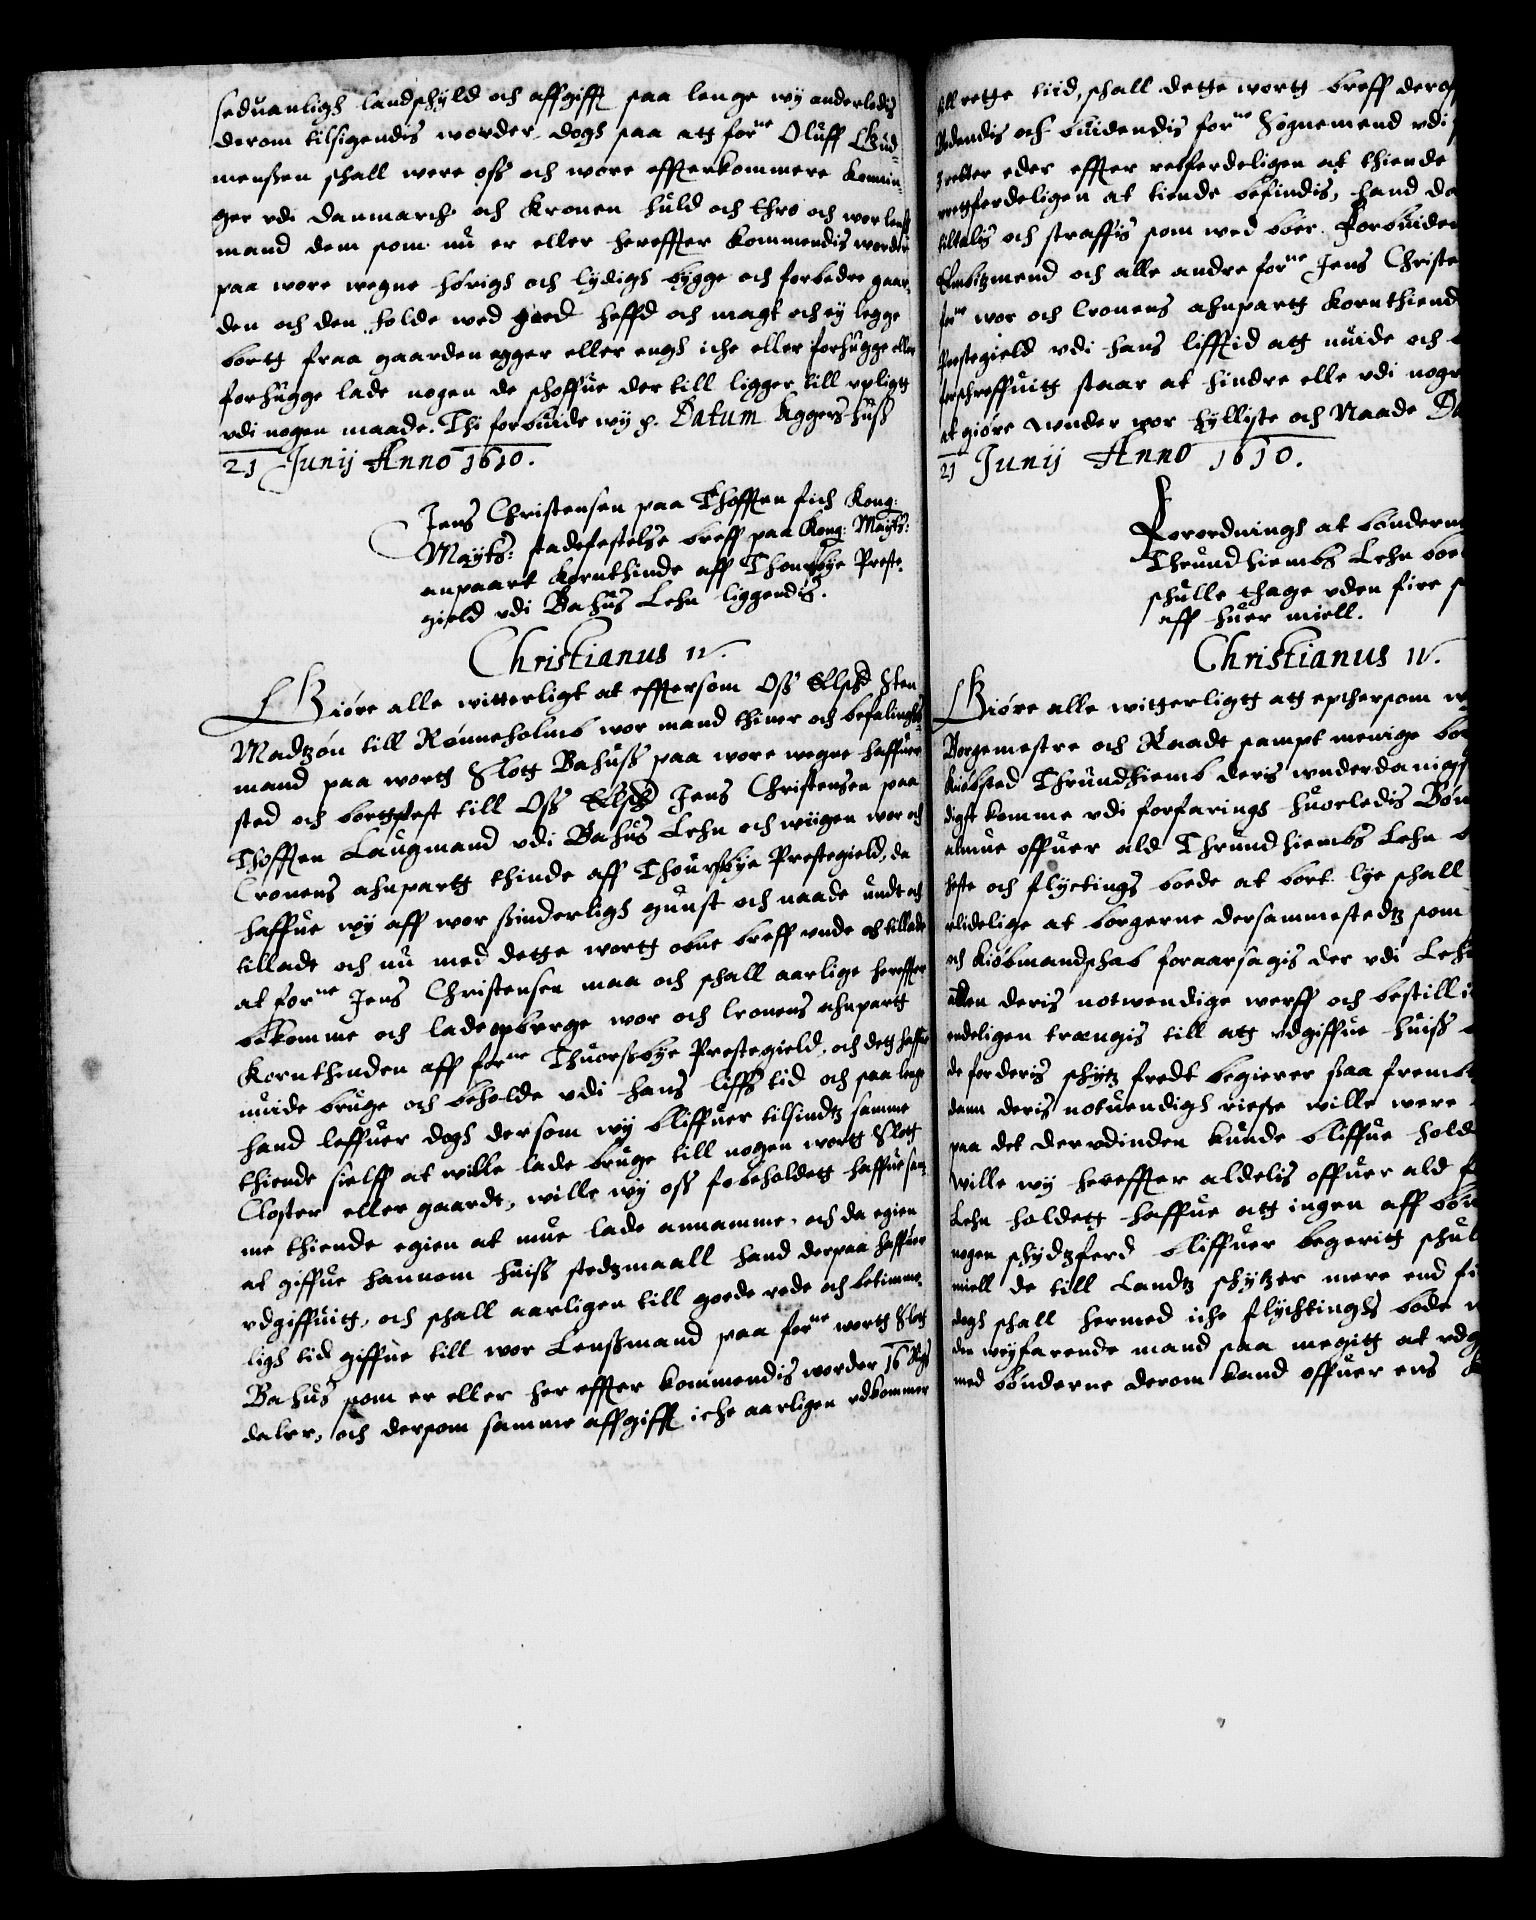 seduanligh landschyld och affgifft saa lenge wy anderledis
derom tilsigendis worder, dogh saa att forne Oluff Gud-
menßen schall were oß och wore effterkommere Konnin-
ger vdi Danmarch och Kronen huld och thro och wor lenß
mand dem som nu er eller hereffter kommendis worder
paa wore wegne hörigh och lydigh bygge och forbedre gaar-
den och den holde wed goed heffd och magt och ey legge
bortt fraa gaarden agger eller engh iche eller forhugge eller
forhugge lade nogen de schoffue der till ligger till vpligtt
vdi nogen maade. Thi forbiude wy p. Datum Aggershuß
21 Junij Anno 1610.
Jens Christensen paa Thofften fich Kong:
Mayts: stadefestelse breff paa Kong: Mayts:
anpaart Kornthinde aff Thorsbye Preste-
gield vdi Bahus Lehn liggendis.
Christianus IV.
Giöre alle witterligt at efftersom Oß Elsch Sten
Madtzön till Rönneholmb wor mand thiner och befalinghs-
mand paa wortt Slott Bahuß paa wore wegne haffuer
sted och bortfest till Oß Elsch Jens Christensen paa
Thofften Laugmand vdi Bahus Lehn och wiigen wor och
Cronens ahnpartt thinde aff Thoursbye Prestegield, da
haffue wy aff wor ßinderligh gunst och naade undt och
tillade och nu med dette wortt obne breff unde och tillade
at forne Jens Christensen maa och schall aarlige hereffter
bekomme och lade opberge wor och Cronens ahnpartt
Kornthinden aff forne Thuorsbye Prestegield, och dett haffue
nuide bruge och beholde vdi hans liffs tid och saa lenge
hand leffuer dogh dersom wy bliffuer tilsindtz samme
thiende sielff at wille lade bruge till nogen wortt Slott
Closter eller gaardt, wille wy oß fobeholdett haffue sam-
me thiende egien at mue lade annamme, och da egien
at giffue hannom huiß stedtzmaall hand derpaa haffuer
vdgiffuitt, och schall aarligen till goede rede och betimme-
ligh tid giffue till wor Lenßmand paa forne wortt Slott
Bahus som er eller her effter kommendis worder 16 Rix
daler, och dersom samme affgifft iche aarligen vdkommer
till rette tiid, schall dette wortt breff deroff
forne Sognemend vdi
eder effter retferdeligen at thiende
retferdeligen at tiende befindis, hand da
tiltalis och straffis som wed bör. Forbiuden
Embitzmend och alle andre forne Jens Christen
forne wor och Cronens ahnpartt Kornthiend
Prestegield vdi hans lifftid att nuide och
forschreffuitt staar at hindre elle vdi nogr
at giöre wnder wor hylliste och Naade Da
21 Junij Anno 1610.
Forordningh at bönderne
Thrundhiembs Lehn boe
schulle thage vden fire s
aff huer miell.
Christianus IV.
Giöre alle witterligtt att epthersom w
Borgemestre och Raadt sampt menige bor
kiöbsted Thrundhiemb deris wnderdanigst
digst komme vdi forfaringh huorledis Bön
almue offuer ald Thrundhiembs Lehn
heste och flyctings boede at bort lye schall
at borgerne dersammestedtz som
och kiöbmandschab foraarsagis der vdi Lehn
deris notwendige werff och bestilli
endeligen trængis till att vdgiffue huiß
de forderis schytz fredt begierer saa frembt
dem deris notuendigh rieße wille were
paa det dervdinden kunde bliffue hold
wille wy hereffter aldelis offuer ald
Lehn holdett haffue att ingen aff bön
nogen schydtzferd bliffuer begeritt schul
miell de till Landtz schytzer mere end fi
dogh schall hermed iche flychtinghs bode
den weyfarende mand saa megitt at vdg
med bönderne derom kand offuer ens